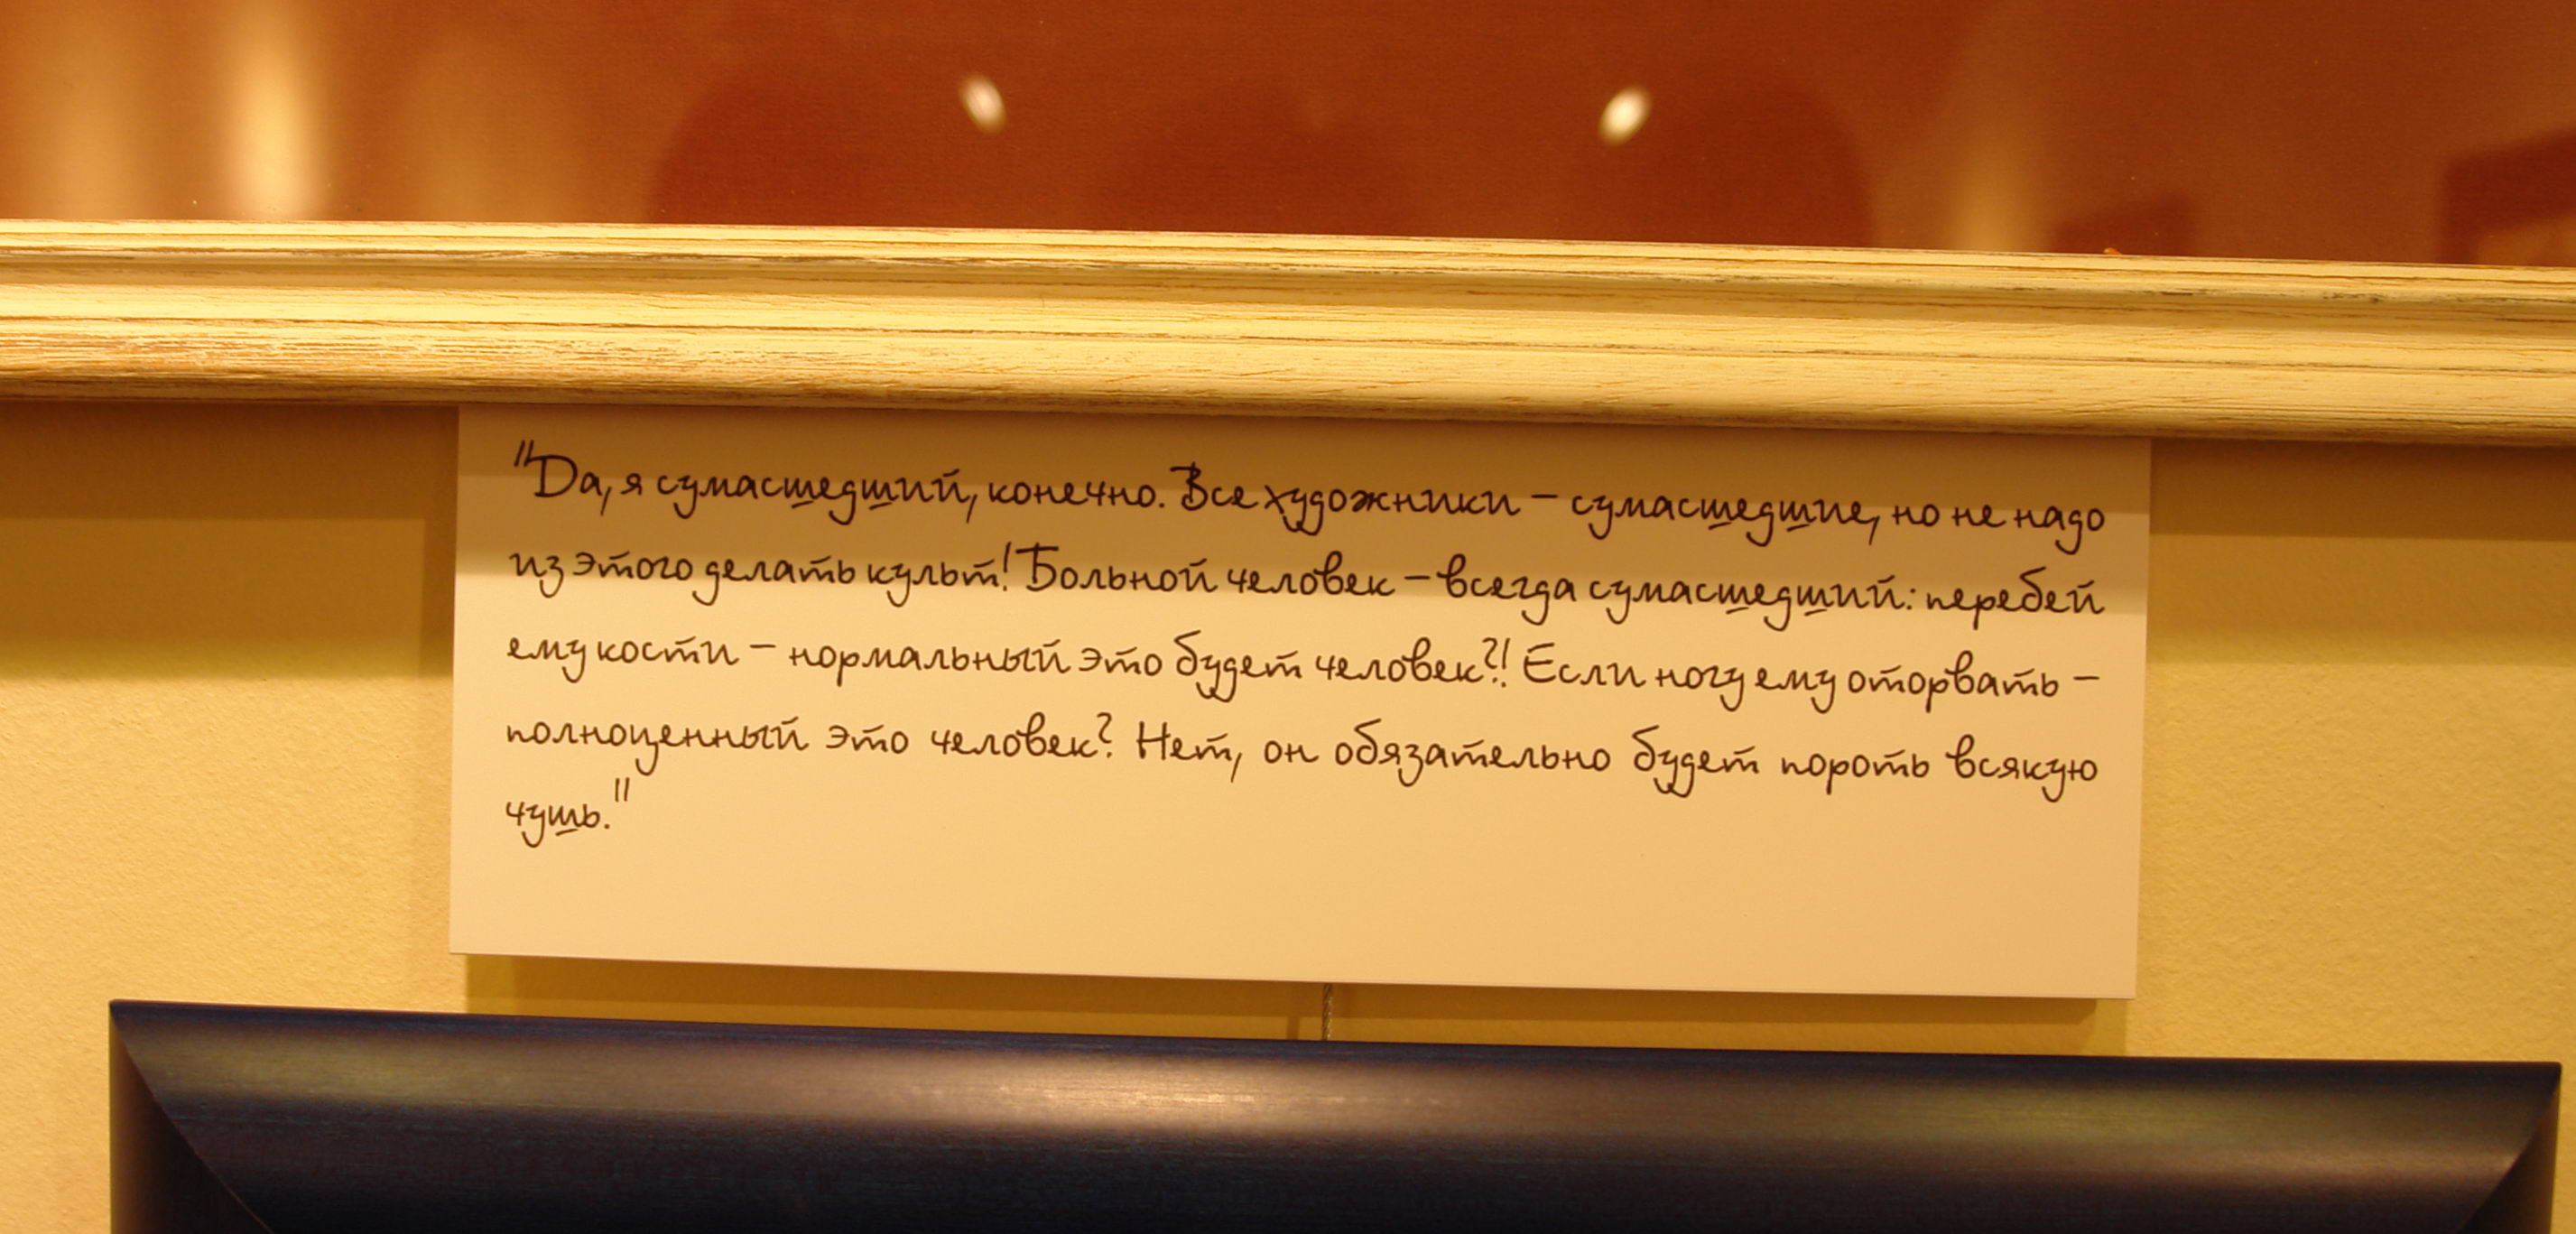 "Да, я сумасшедший, конечно. Все художники – сумасшедшие, но не надо
из этого делать культ! Больной человек – всегда сумасшедший: перебей
ему кости – нормальный это будет человек?! Если ногу ему оторвать –
полноценный это человек? Нет, он обязательно будет пороть всякую
чушь."